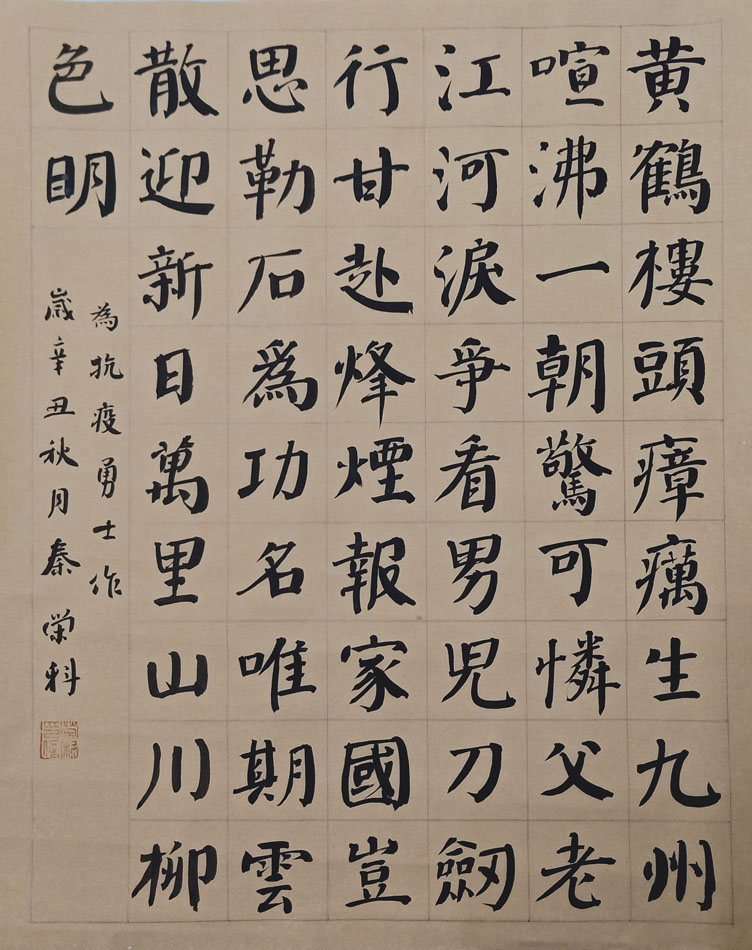 黄鶴樓頭瘴癘生九州
喧沸一朝驚可憐父老
江河淚爭看男兒刀劒
行甘赴烽煙報家國豈
思勒石為功名唯期雲
散迎新日萬里山川柳
色明
為抗疫勇士作
歲辛丑秋月秦荣科